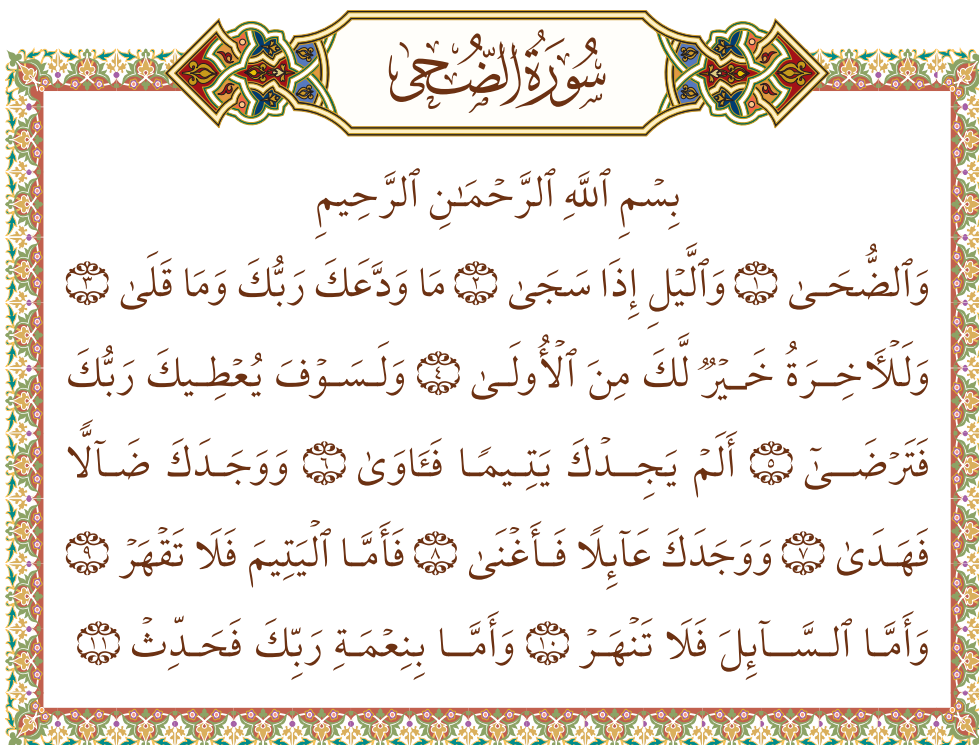 سُورَةُ الضُّحَى
بِسْمِ ٱللَّهِ ٱلرَّحْمَـٰنِ ٱلرَّحِيمِ
وَٱلضُّحَـىٰ ١ وَٱلَّيْلِ إِذَا سَجَىٰ ٢ مَا وَدَّعَكَ رَبُّكَ وَمَا قَلَىٰ ٣
وَلَلْأَخِـرَةُ خَـيْرٌ لَّكَ مِنَ ٱلْأُولَـىٰ ٤ وَلَـسَـوْفَ يُعْطِـيكَ رَبُّكَ
فَتَرْضَـــىٰٓ ٥ أَلَمْ يَجِــدْكَ يَتِـيمًـا فَـَٔاوَىٰ ٦ وَوَجَـدَكَ ضَـآلًّا
فَهَـدَىٰ ٧ وَوَجَدَكَ عَآئِلًا فَـأَغْنَىٰ ٨ فَأَمَّـا ٱلْيَتِيمَ فَلَا تَقْهَرْ ٩
وَأَمَّـا ٱلـسَّــآئِلَ فَلَا تَنْهَـرْ ١٠ وَأَمَّــا بِنِعْمَـةِ رَبِّكَ فَحَـدِّثْ ١١